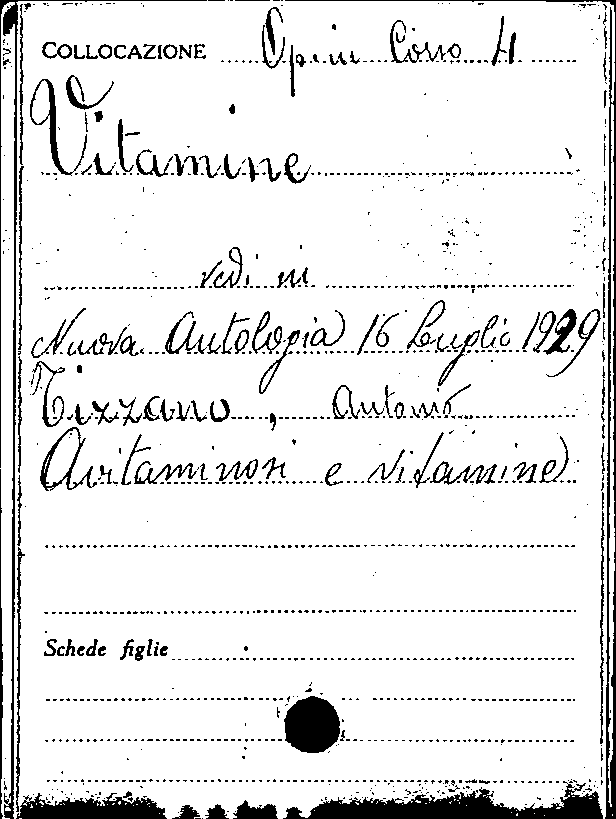 COLLOCAZIONE Op. in Corso 4
Vitamine
vedi in
Nuova Antologia 16 Luglio 1929
Tizzano, Antonio
Avitaminosi e vitamine
Schede figlie